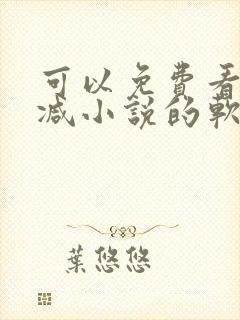 可以免費看
减小說的軟
葉悠悠